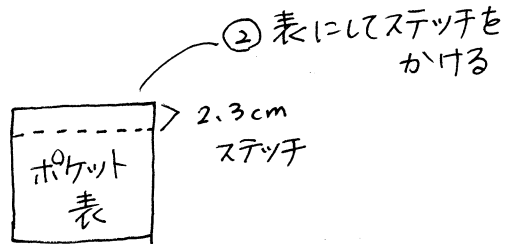 ② 表にしてステッチを
かける
2.3cm
ステッチ
ポケット
表